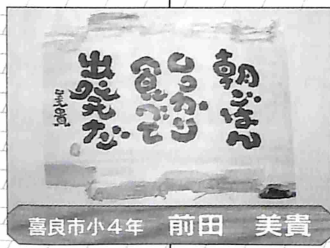 朝ごはん
しっかり
食べて
出発だ
美貴
喜良市小4年 前田 美貴